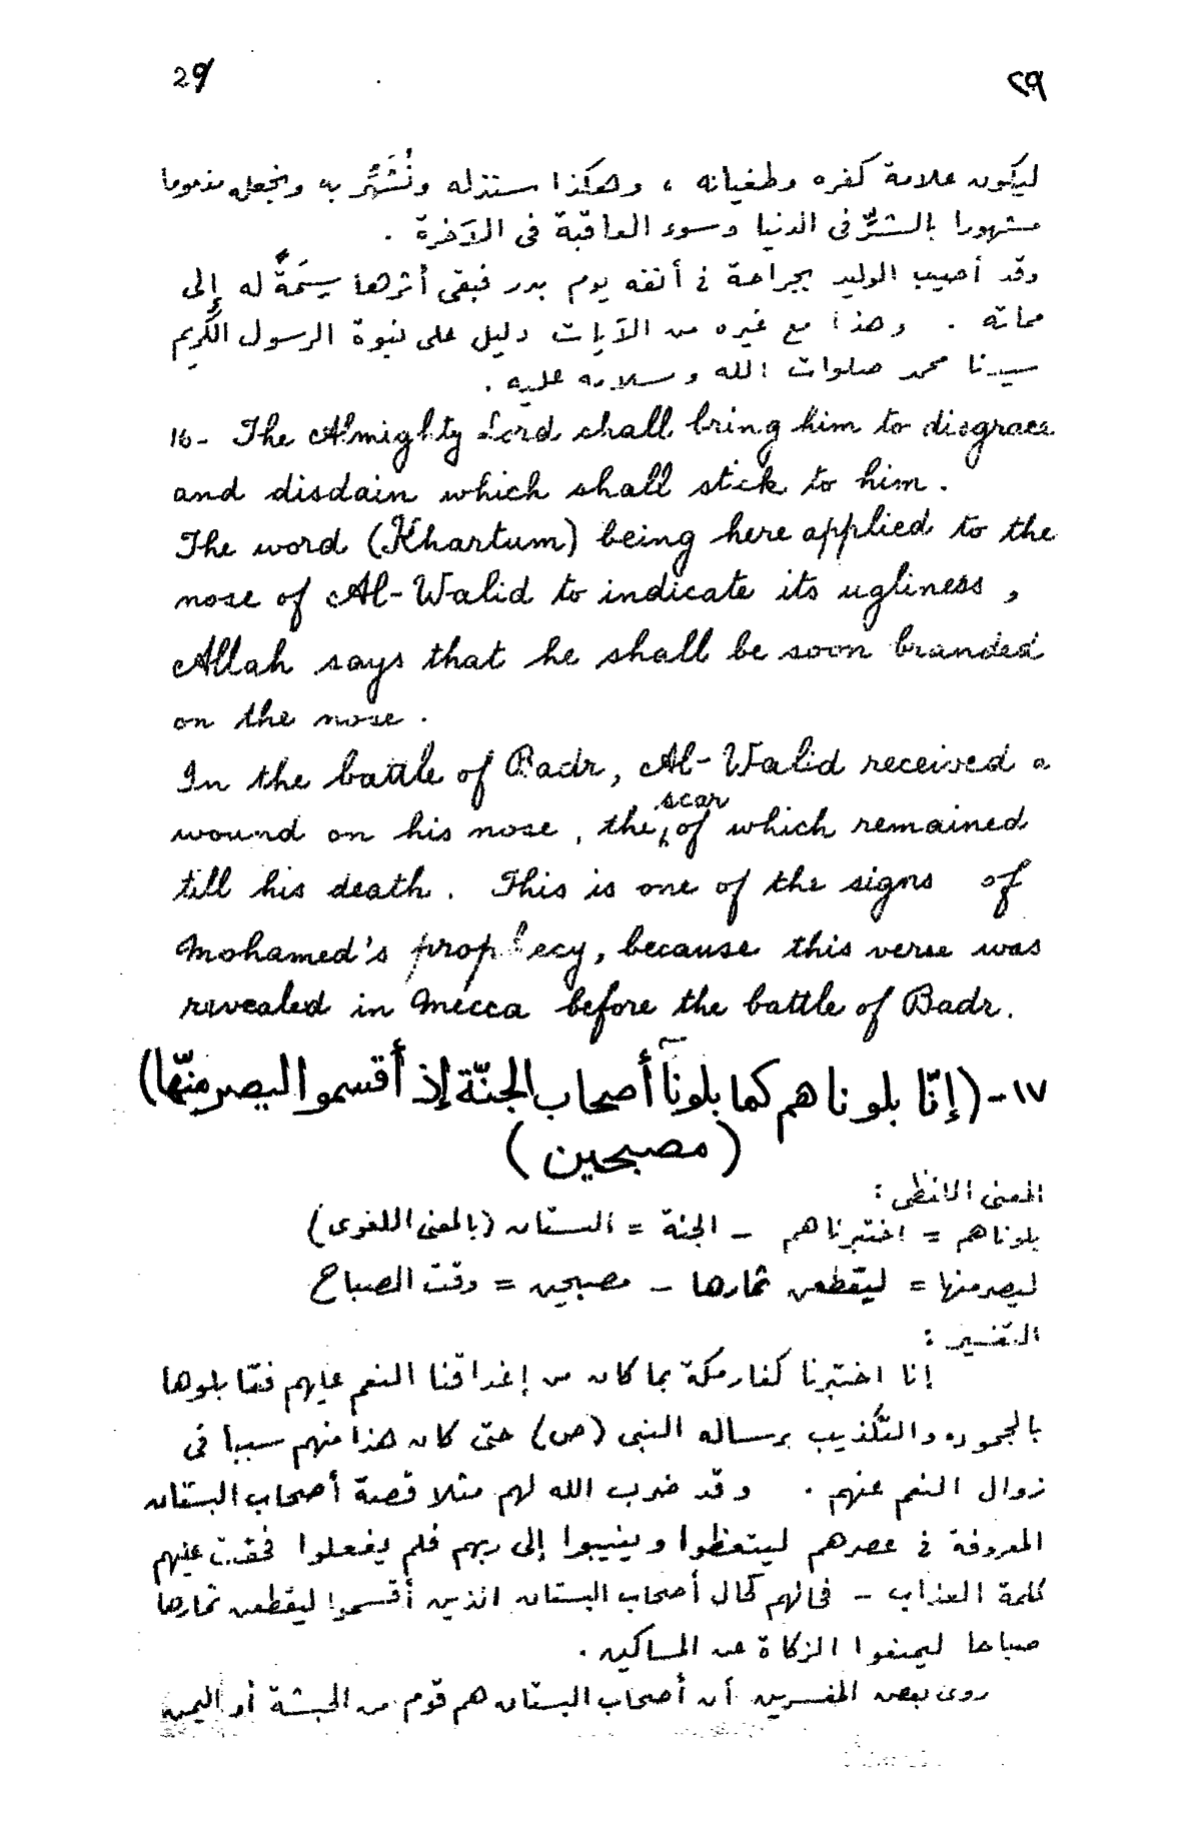 29 ٢٩
ليكون علامة كفره وطغيانه ، وهكذا سنذله ونُشَهِّر به ونجعله مذموما
مشهورا بالشرِّ فى الدنيا وسوء العاقبة فى الآخرة .
وقد أصيب الوليد بجراحة في أنفه يوم بدر فبقى أثرها سِمَةً له إلى
مماته . وهذا مع غيره من الآيات دليل على نبوة الرسول الكريم
سيدنا محمد صلوات الله وسلامه عليه .
16- The Almighty Lord shall bring him to disgrace
and disdain which shall stick to him.
The word (Khartum) being here applied to the
nose of Al-Walid to indicate its ugliness ,
Allah says that he shall be soon branded
on the nose .
In the battle of Badr, Al-Walid received a
wound on his nose , the scar of which remained
till his death . This is one of the signs of
Mohamed's prophecy, because this verse was
revealed in Mecca before the battle of Badr.
١٧- (إنّا بلوناهم كما بلونآ أصحاب الجنّة إذ أقسموا ليصرمنّها)
(مصبحين)
المعنى اللفظى :
بلوناهم = اختبرناهم – الجنة = البستان (بالمعنى اللغوى)
ليصرمنها = ليقطعن ثمارها – مصبحين = وقت الصباح
التفسير :
إنا اختبرنا كفار مكة بما كان من إغداقنا النعم عليهم فقابلوها
بالجحود والتكذيب برسالة النبى (ص) حتى كان هذا منهم سببا فى
زوال النعم عنهم . وقد ضرب الله لهم مثلا قصة أصحاب البستان
المعروفة في عصرهم ليتعظوا وينيبوا إلى ربهم فلم يفعلوا فحقت عليهم
كلمة العذاب – فحالهم كحال أصحاب البستان الذين أقسموا ليقطعن ثمارها
صباحا ليمنعوا الزكاة عن المساكين .
روى بعض المفسرين أن أصحاب البستان هم قوم من الحبشة أو اليمن